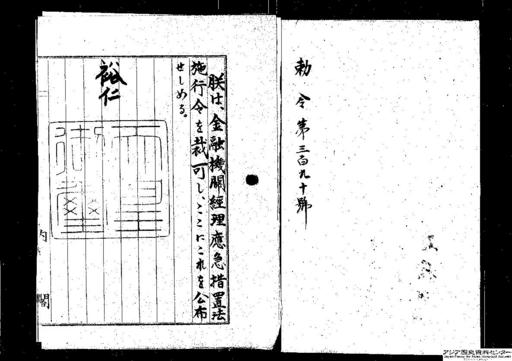 勅令第三百九十號
朕は、金融機關經理應急措置法
施行令を裁可し、ここにこれを公布
せしめる。
裕仁
御璽
内閣
アジア歴史資料センター